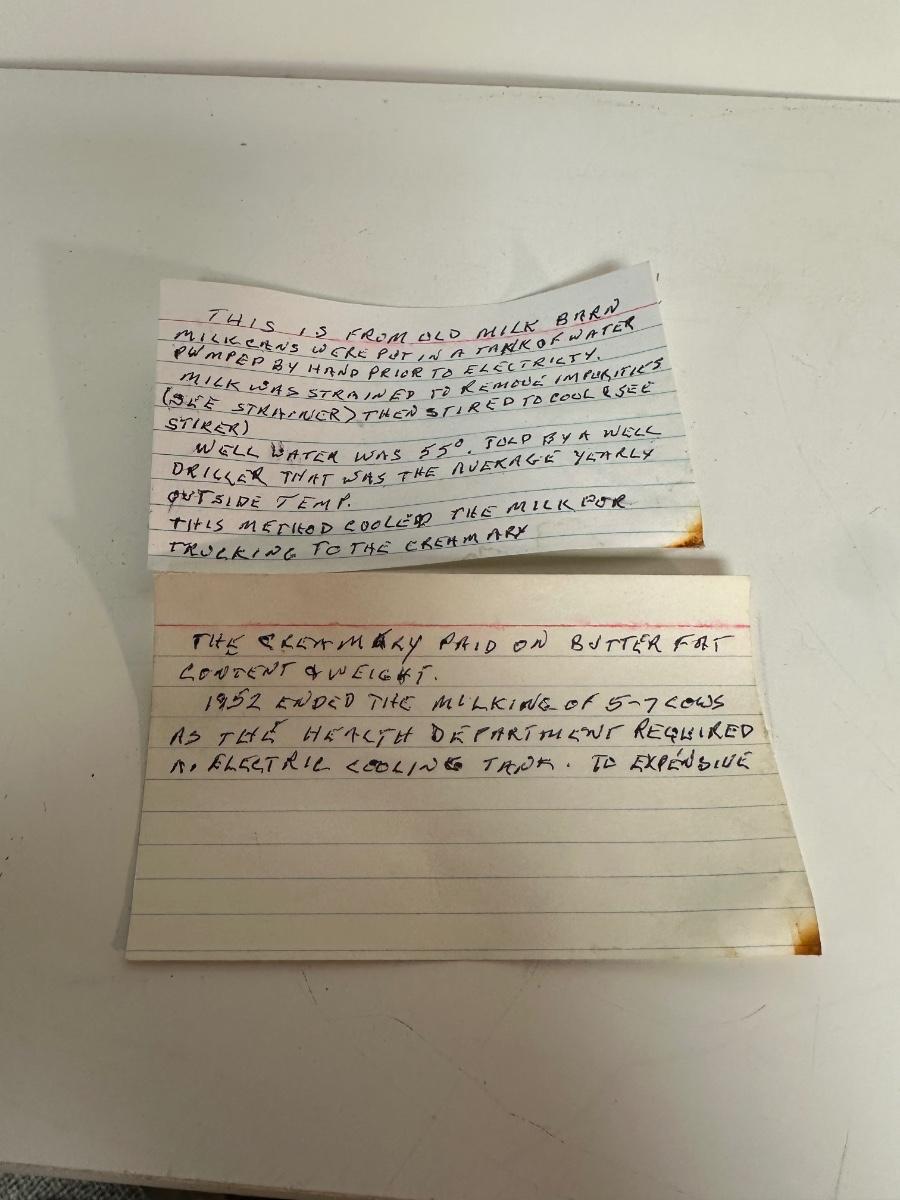 THIS IS FROM OLD MILK BARN
MILK CANS WERE PUT IN A TANK OF WATER
PUMPED BY HAND PRIOR TO ELECTRICTY.
MILK WAS STRAINED TO REMOVE IMPURITIES
(SEE STRAINER) THEN STIRED TO COOL & SEE
STIRER)
WELL WATER WAS 55°. TOLD BY A WELL
DRILLER THAT WAS THE AVERAGE YEARLY
OUTSIDE TEMP.
THIS METHOD COOLED THE MILK FOR
TRUCKING TO THE CREAMARY
THE CREAMERY PAID ON BUTTER FAT
CONTENT & WEIGHT.
1952 ENDED THE MILKING OF 5-7 COWS
AS THE HEALTH DEPARTMENT REQUIRED
A. ELECTRIC COOLING TANK. TO EXPENSIVE